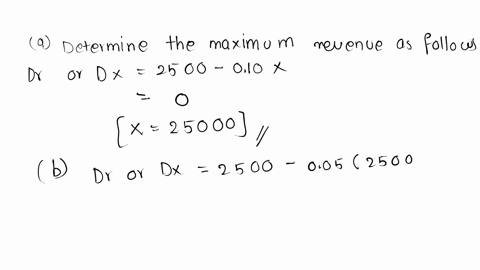 (a) Determine the maximum revenue as follows
Dr or Dx = 2500 - 0.10 x
= 0
[x = 25000] //
(b) Dr or Dx = 2500 - 0.05 (2500